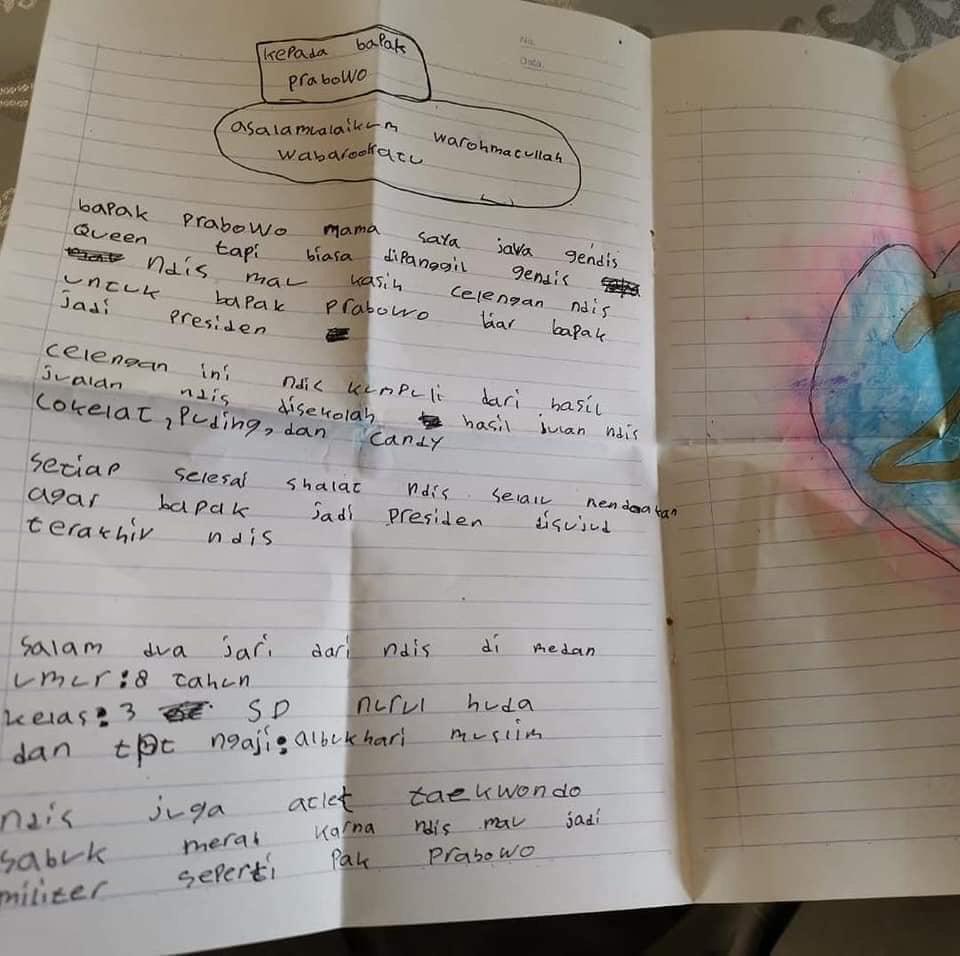 No.
Date.
kepada bapak
prabowo
asalamualaikum warohmatullah
wabarookatu
bapak prabowo mama saya java gendis
Queen tapi biasa dipanggil gendis
ndis mau kasih celengan ndis
untuk bapak prabowo biar bapak
jadi presiden
celengan ini ndis kumpuli dari hasil
jualan ndis disekolah hasil julan ndis
cokelat, puding, dan candy
setiap selesai shalat ndis selalu mendoakan
agar bapak jadi presiden disujud
terakhir ndis
salam dua jari dari ndis di medan
umur:8 tahun
kelas:3 SD nurul huda
dan tpt ngaji:albukhari muslim
ndis juga atlet taekwondo
sabuk merah karna ndis mau jadi
militer seperti pak prabowo
2